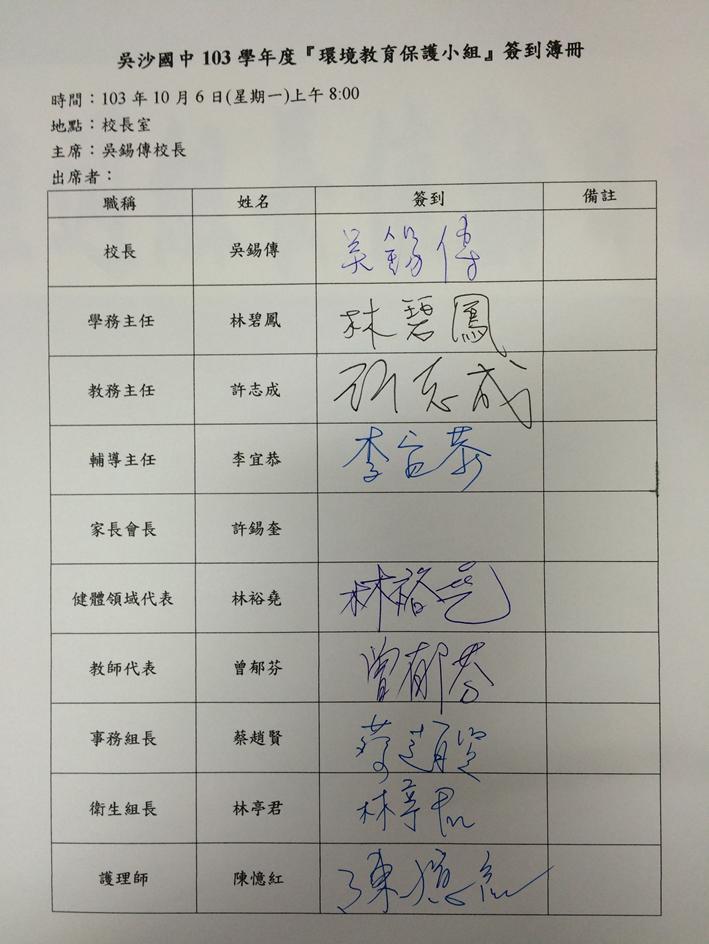 吳沙國中 103 學年度『環境教育保護小組』簽到簿冊
時間：103 年 10 月 6 日(星期一)上午 8:00
地點：校長室
主席：吳錫傳校長
出席者：
職稱 姓名 簽到 備註
校長 吳錫傳 吳錫傳
學務主任 林碧鳳 林碧鳳
教務主任 許志成 許志成
輔導主任 李宜恭 李宜恭
家長會長 許錫奎
健體領域代表 林裕堯 林裕堯
教師代表 曾郁芬 曾郁芬
事務組長 蔡趙賢 蔡趙賢
衛生組長 林亭君 林亭君
護理師 陳憶紅 陳憶紅